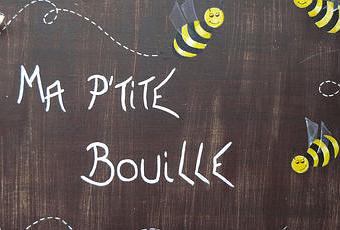 Ma P'tite
Bouille